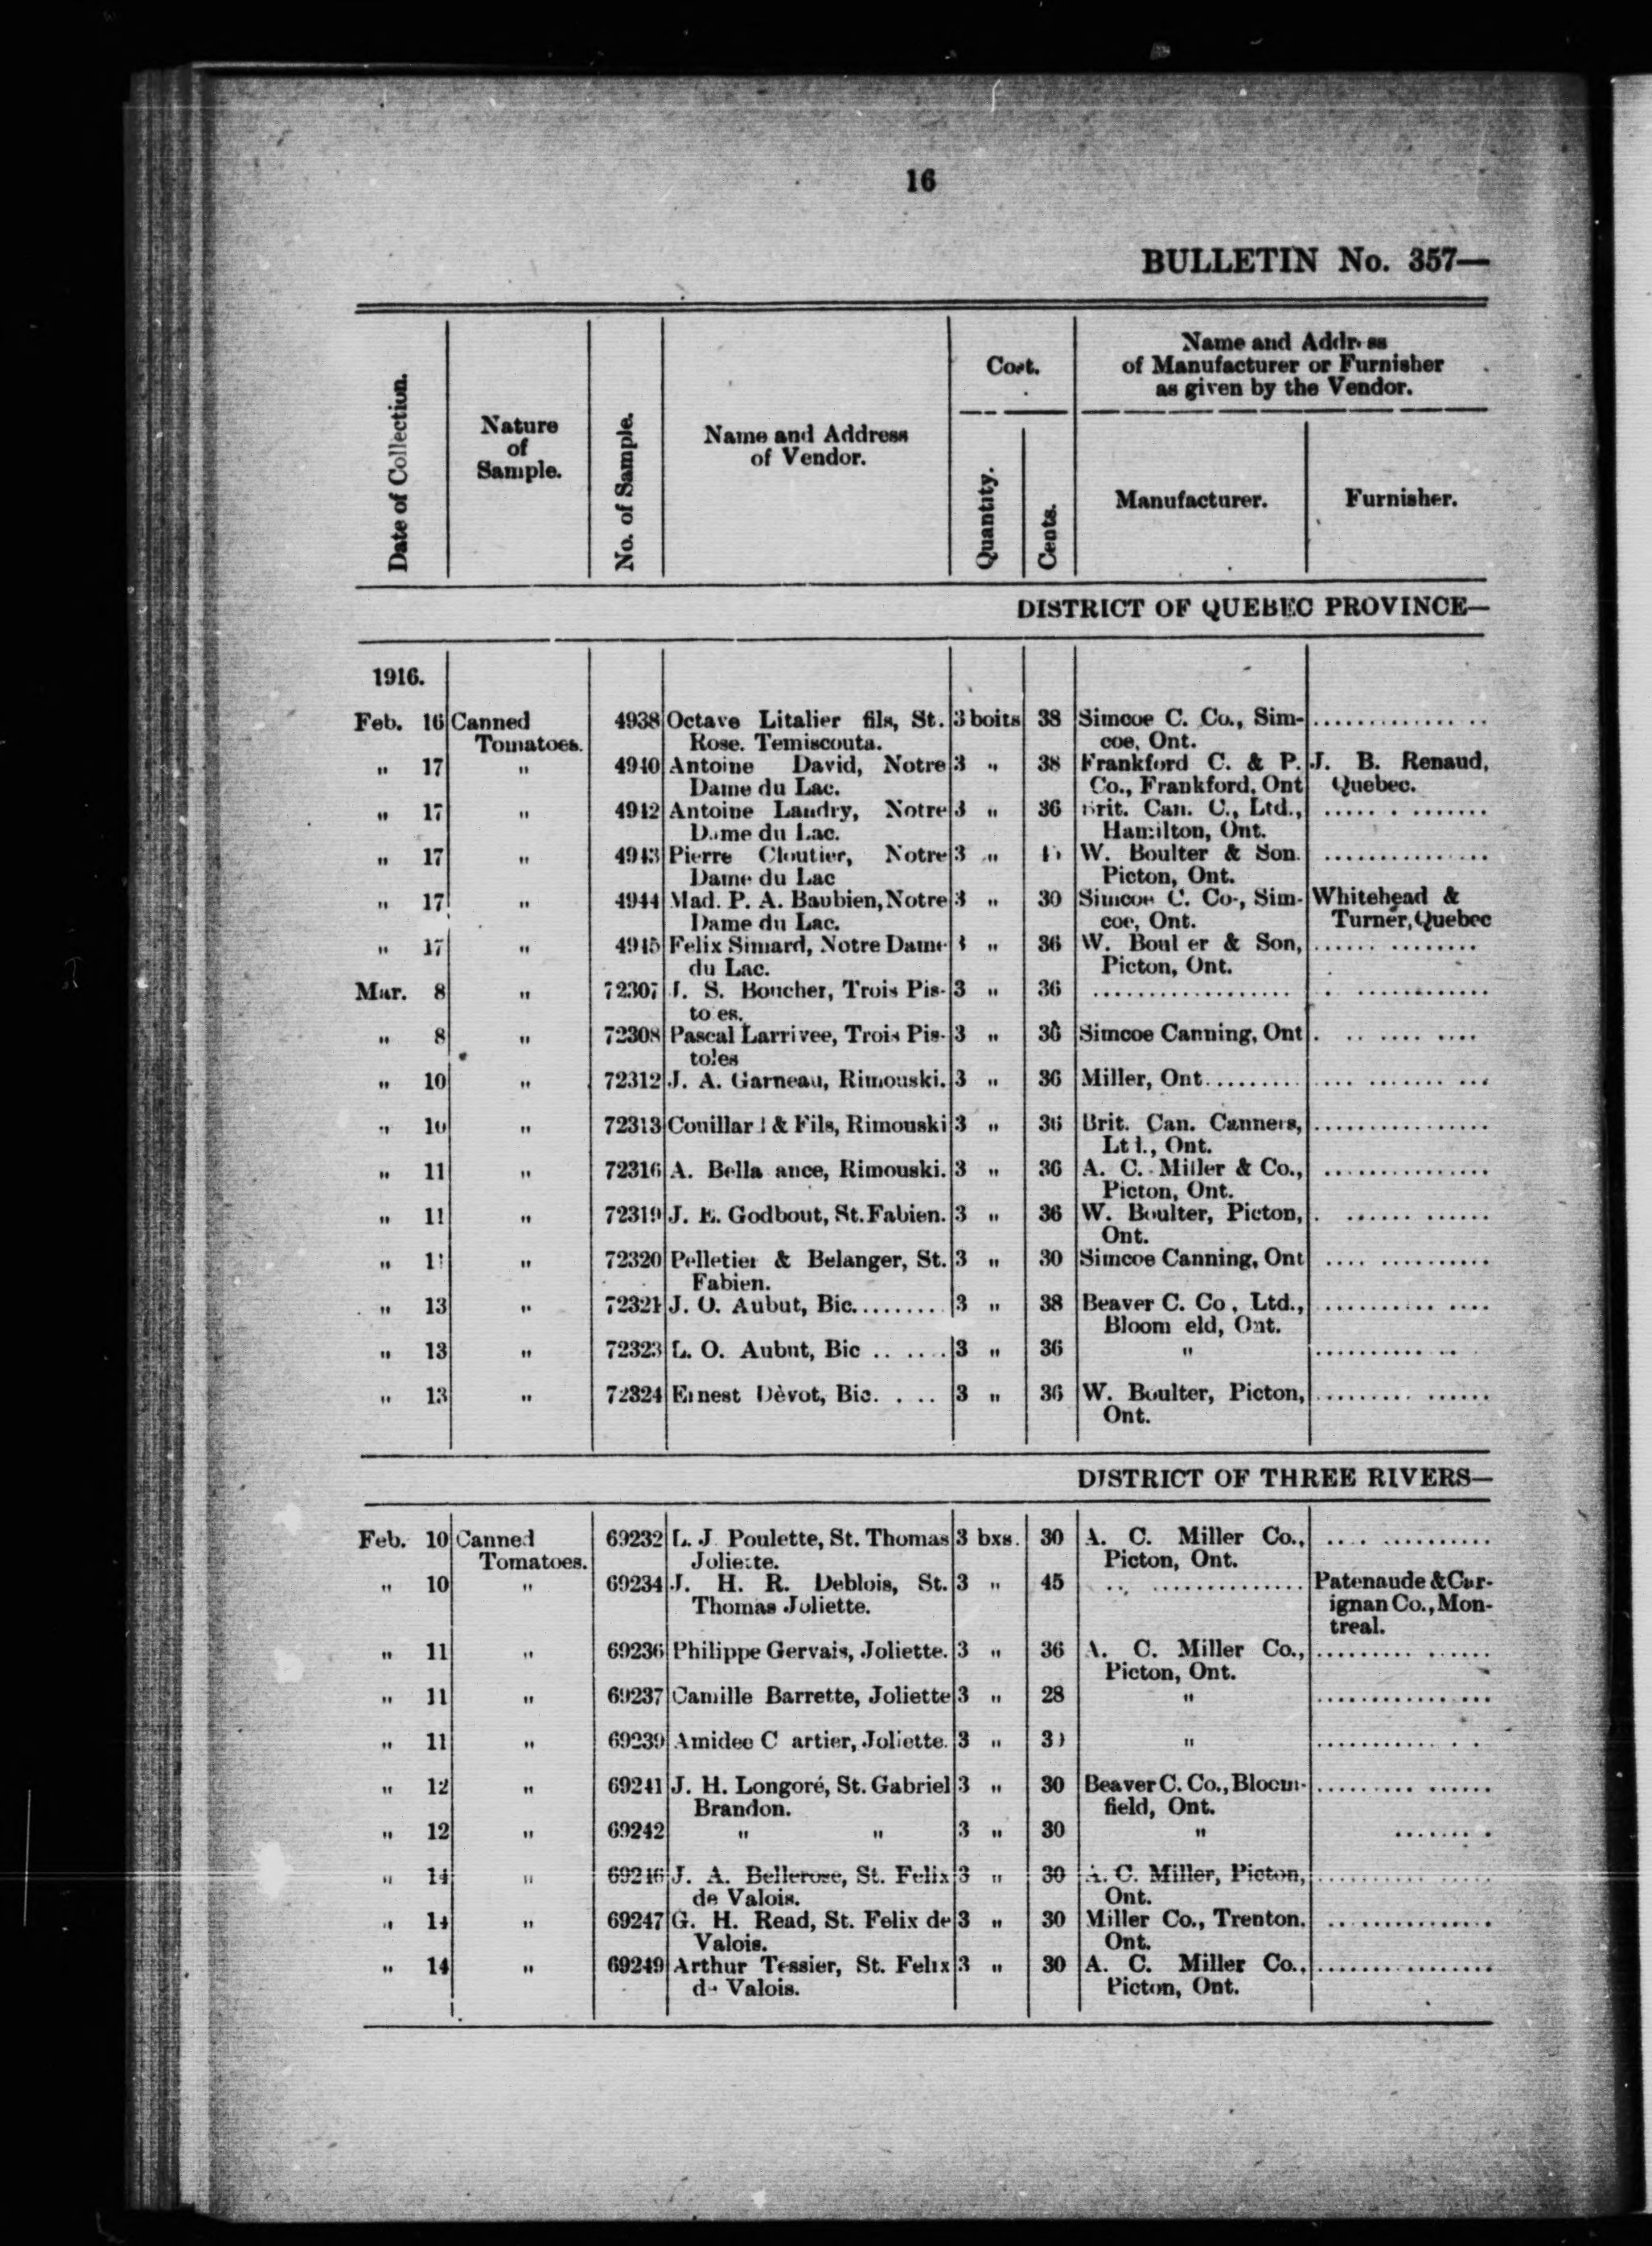 16
BULLETIN No. 357—
Name and Addr ss
Cost. of Manufacturer or Furnisher
as given by the Vendor.
Date of Collection.
Nature
of
Sample.
No. of Sample.
Name and Address
of Vendor.
Quantity.
Cents.
Manufacturer. Furnisher.
DISTRICT OF QUEBEC PROVINCE—
1916.
Feb. 16 Canned 4938 Octave Litalier fils, St. 3 boits 38 Simcoe C. Co., Sim- ..............
Tomatoes. Rose. Temiscouta. coe, Ont.
" 17 " 4940 Antoine David, Notre 3 " 38 Frankford C. & P. J. B. Renaud,
Dame du Lac. Co., Frankford, Ont Quebec.
" 17 " 4942 Antoine Landry, Notre 3 " 36 Brit. Can. C., Ltd., ..............
Dame du Lac. Hamilton, Ont.
" 17 " 4943 Pierre Cloutier, Notre 3 " W. Boulter & Son. ..............
Dame du Lac Picton, Ont.
" 17 " 4944 Mad. P. A. Baubien, Notre 3 " 30 Simcoe C. Co., Sim- Whitehead &
Dame du Lac. coe, Ont. Turner, Quebec
" 17 " 4945 Felix Simard, Notre Dame " 36 W. Boul er & Son, ..............
du Lac. Picton, Ont.
Mar. 8 " 72307 J. S. Boucher, Trois Pis- 3 " 36 .................. ..............
to es.
" 8 " 72308 Pascal Larrivee, Trois Pis- 3 " 36 Simcoe Canning, Ont ..............
toles
" 10 " 72312 J. A. Garneau, Rimouski. 3 " 36 Miller, Ont......... ..............
" 10 " 72313 Couillard & Fils, Rimouski 3 " 36 Brit. Can. Canners, ..............
Ltd., Ont.
" 11 " 72316 A. Bella ance, Rimouski. 3 " 36 A. C. Miller & Co., ..............
Picton, Ont.
" 11 " 72319 J. E. Godbout, St. Fabien. 3 " 36 W. Boulter, Picton, ..............
Ont.
" " 72320 Pelletier & Belanger, St. 3 " 30 Simcoe Canning, Ont ..............
Fabien.
" 13 " 72321 J. O. Aubut, Bic........ 3 " 38 Beaver C. Co, Ltd., ..............
Bloom eld, Ont.
" 13 " 72323 L. O. Aubut, Bic ...... 3 " 36 " ..............
" 13 " 72324 Ernest Dèvot, Bic. . .. 3 " 36 W. Boulter, Picton, ..............
Ont.
DISTRICT OF THREE RIVERS—
Feb. 10 Canned 69232 L. J. Poulette, St. Thomas 3 bxs. 30 A. C. Miller Co., ..............
Tomatoes. Joliette. Picton, Ont.
" 10 " 69234 J. H. R. Deblois, St. 3 " 45 ................ Patenaude & Car-
Thomas Joliette. ignan Co., Mon-
treal.
" 11 " 69236 Philippe Gervais, Joliette. 3 " 36 A. C. Miller Co., ..............
Picton, Ont.
" 11 " 69237 Camille Barrette, Joliette 3 " 28 " ..............
" 11 " 69239 Amidee C artier, Joliette. 3 " " ..............
" 12 " 69241 J. H. Longoré, St. Gabriel 3 " 30 Beaver C. Co., Bloom- ..............
Brandon. field, Ont.
" 12 " 69242 " " 3 " 30 " ........
" 14 " 69246 J. A. Bellerose, St. Felix 3 " 30 A. C. Miller, Picton, ..............
de Valois. Ont.
" 14 " 69247 G. H. Read, St. Felix de 3 " 30 Miller Co., Trenton. ..............
Valois. Ont.
" 14 " 69249 Arthur Tessier, St. Felix 3 " 30 A. C. Miller Co., ..............
de Valois. Picton, Ont.